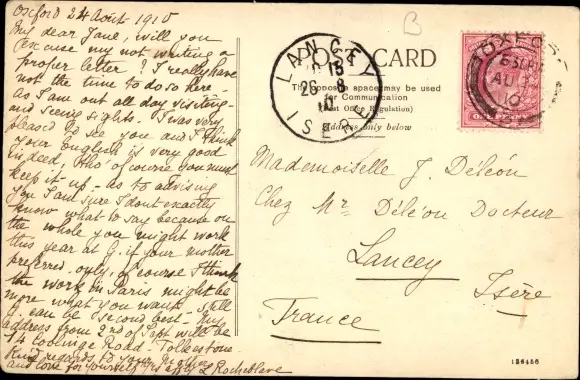 Oxford 24 Août 1910
My dear Jane, will you
excuse my not writing a
proper letter? I really have
not the time to do so here
as I am out all day visiting
and seeing sights. I was very
pleased to see you and I think
your English is very good
indeed, tho' of course you must
keep it up - as to advising
you I am sure I don't exactly
know what to say because on
the whole you might work
this year at G. if your mother
preferred. only, of course I think
the work in Paris might be
more what you want.
G. can be "second best" - My
address from 2nd of Sept will be
14 Coolinge Road - Folkestone
Kind regards to your Mother
and love for yourself L Rocheblave
POST CARD
The opposite space may be used
for Communication
(Post Office Regulation)
Address only below
B
LANCEY
ISERE
OXFORD
AU
10
ONE PENNY
Mademoiselle J. Déléon
Chez Mr. Déléon Docteur
Lancey
Isère
France